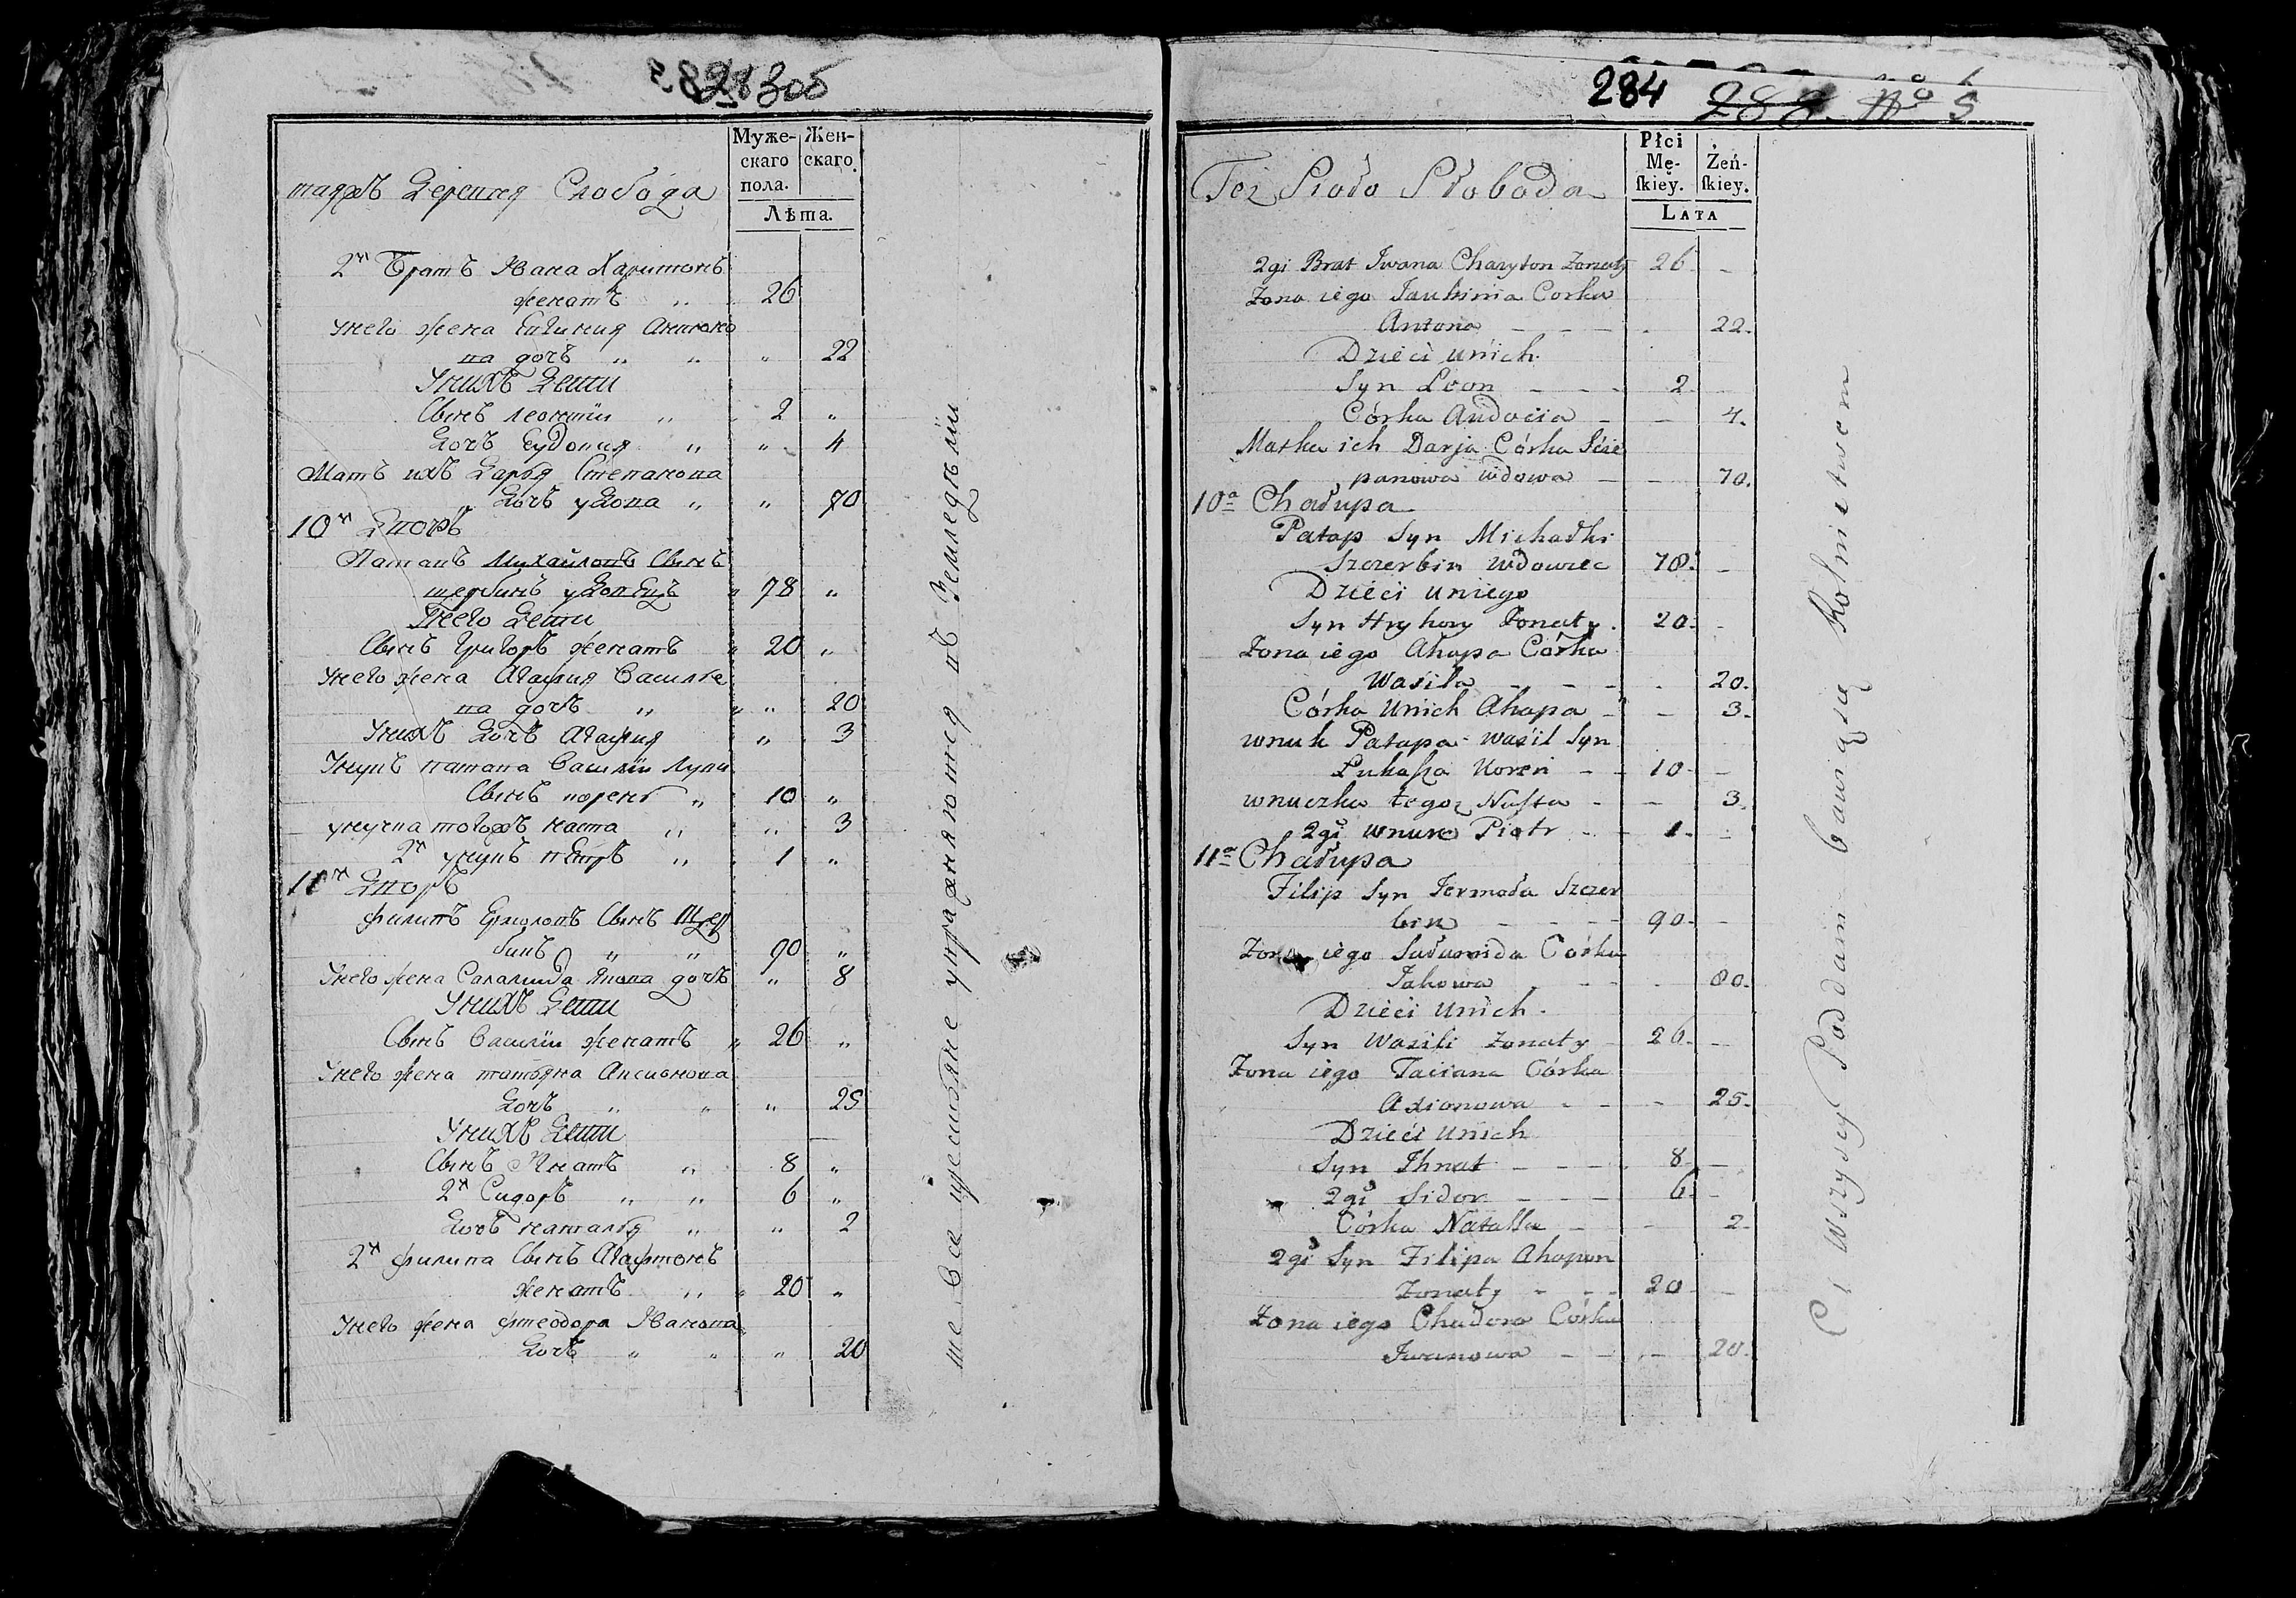 305
Муже-
скаго
пола.
Жен-
скаго.
Лѣта.
таяжъ Деревня Слобода
2й Братъ Ивана Харитонъ
женатъ „ 26
Унего жена Евгиния Антоно
ва дочъ „ „ „ 22
Унихъ Дети
Сынъ Леонтїи „ 2 „
Дочъ Еудокия „ „ 4
Мать ихъ Дарья Степанова
„ Дочъ удова „ „ 70
10й Дворъ
Патапъ Михайловъ Сынъ
щербинъ удовецъ „ 78 „
Унего Дети
Сынъ Григоръ женатъ „ 20 „
Унего жена Агафия Василье
ва дочъ „ „ „ 20
Унихъ Дочъ Агафия „ 3
Унукъ патапа Василїи Луки
Сынъ корень „ 10 „
унучка тогожъ наста „ „ 3
2й унукъ петръ „ 1 „
11й Дворъ
филипъ Ермоловъ Сынъ Щер
бинъ „ „ 90 „
Унего жена Саламида Якова дочъ „ 8
Унихъ Дети
Сынъ Василїи женатъ „ 26 „
Унего жена татьяна Аксионова
Дочъ „ „ „ 25
Унихъ Дети
Сынъ Игнатъ „ 8 „
2й Сидоръ „ „ 6 „
Дочъ наталья „ „ 2
2й филипа Сынъ Агафтонъ
женатъ „ „ 20 „
Унего жена фтеодора Иванова
Дочъ „ „ „ 20
упражняютея въ Земледѣлїи
284 288 No 5
Płci
Mę-
ſkiey.
Żeń-
ſkiey.
LATA
Też Sioło Słoboda
2gi Brat Iwana Charyton Żonaty 26 -
Żona iego Jauhinia Corka
Antona - - - 22.
Dzieci unich.
Syn Leon - - - 2
Córka Audocia - - 4.
Matka ich Darja Córka Scie
panowa wdowa - - 70.
10a Chałupa
Patap Syn Michałki
Szczerbin wdowiec 78. -
Dzieci uniego
Syn Hryhory Żonaty. 20. -
Żona iego Ahapa Córka
Wasila - - - 20.
Córka Unich Ahapa - - 3.
wnuk Patapa Wasil Syn
Łukaſza Koreń - - 10 -
wnuczka tegoż Naſta - - 3.
2gi wnuk Piotr - - 1. -
11a Chałupa
Filip Syn Jermoła Szczer
bin - - - 90. -
Żona iego Sałamida Corka
Jakowa - - - 80.
Dzieci unich.
Syn Wasili żonaty - 26. -
Żona iego Taciana Córka
Axionowa - - - 25.
Dzieci unich
Syn Ihnat - - - 8 -
2gi Sidor - - - 6. -
Córka Natalla - - 2.
2gi Syn Filipa Ahapon
Żonaty - - - 20 -
Żona iego Chudora Córka
Iwanowa - - - 20.
Ci wszyscy Poddani bawią się Rolnictwem